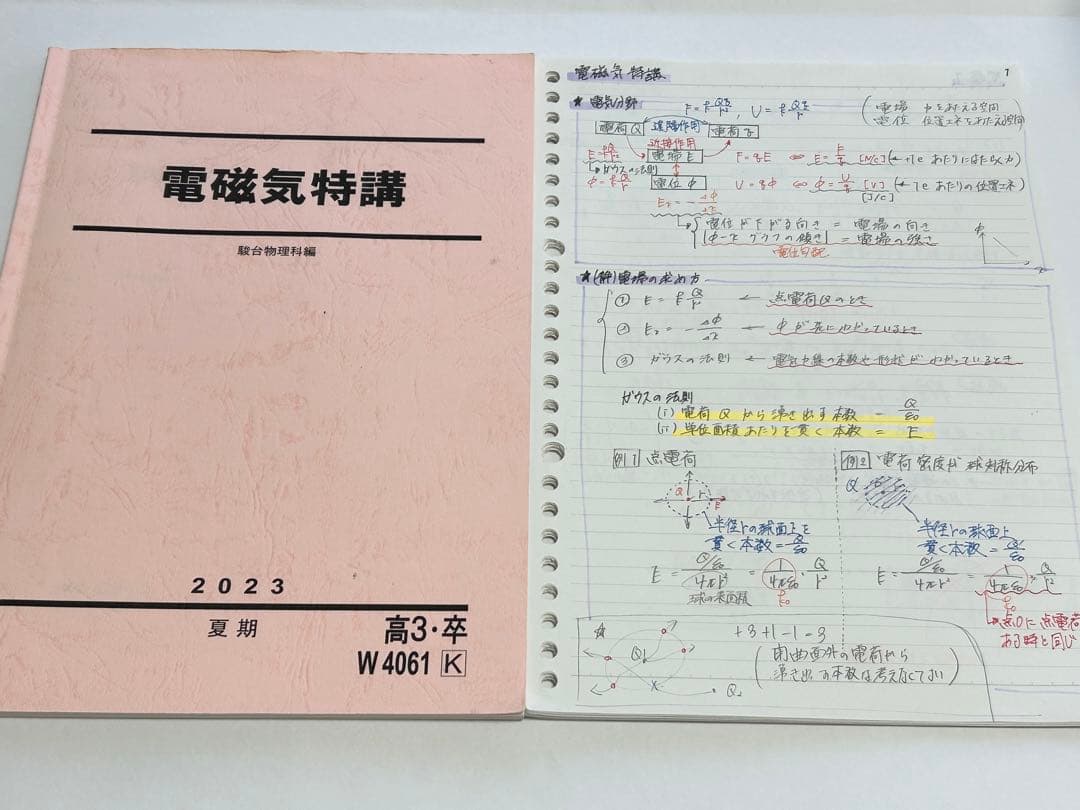 電磁気特講
駿台物理科編
2023
夏期
高3・卒
W4061 K
電磁気特講
1
★ 電気分野
F = k Qq/r², U = k Qq/r
(電場 力を与える空間
電位 位置エネを与える空間)
電荷Q 遠隔作用 電荷q
近接作用
E = k Q/r² 電場E F = qE ⇔ E = F/q [N/C] (← +1c あたりにはたらく力)
ガウスの法則
Φ = k Q/r 電位Φ U = qΦ ⇔ Φ = U/q [V] (← 1c あたりの位置エネ)
[J/C]
電位が下がる向き = 電場の向き
グラフの傾き = 電場の強さ
電位勾配
★(静)電場の求め方
① ← 点電荷Qのとき
② ← Φが先にわかっているとき
③ ガウスの法則 ← 電気力線の本数や形状がわかっているとき
ガウスの法則
(i) 電荷Qから湧き出す本数 = Q/ε0
(ii) 単位面積あたりを貫く本数 = E
例1 点電荷
Q r E
半径rの球面上を
貫く本数 = Q/ε0
E = Q/ε0 / 4πr² = 1/4πε0 ・ Q/r²
球の表面積
k0
例2 電荷密度が球対称分布
Q
半径rの球面上
貫く本数 = Q/ε0
E = Q/ε0 / 4πr² = 1/4πε0 ・ Q/r²
k0
点Oに点電荷
ある時と同じ
☆ +3+1-1-3
Q1
Q2
(閉曲面外の電荷から
湧き出す本数は考えなくてよい)